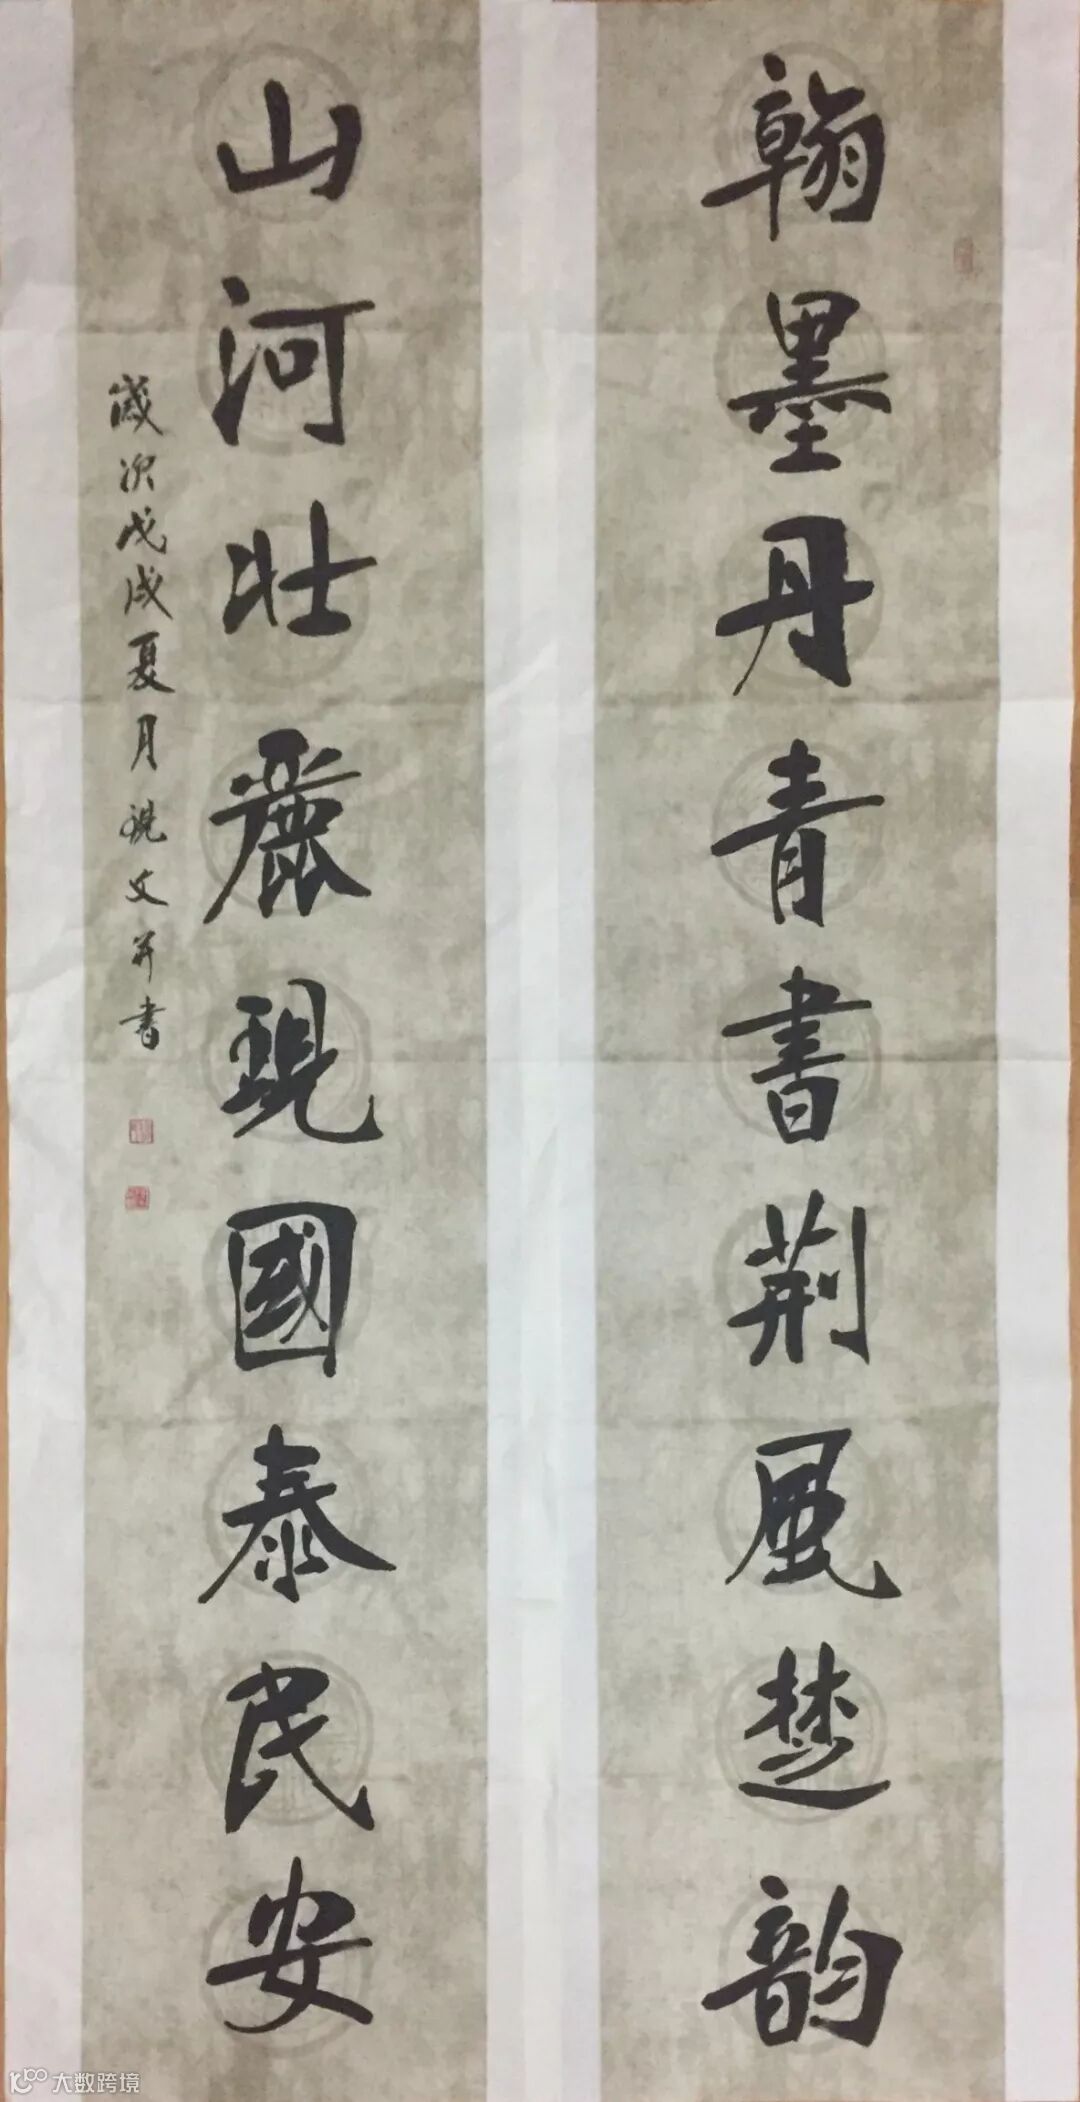 翰墨丹青書荊風楚韵
山河壯麗現國泰民安
歲次戊戌夏月 文并書
大数跨境